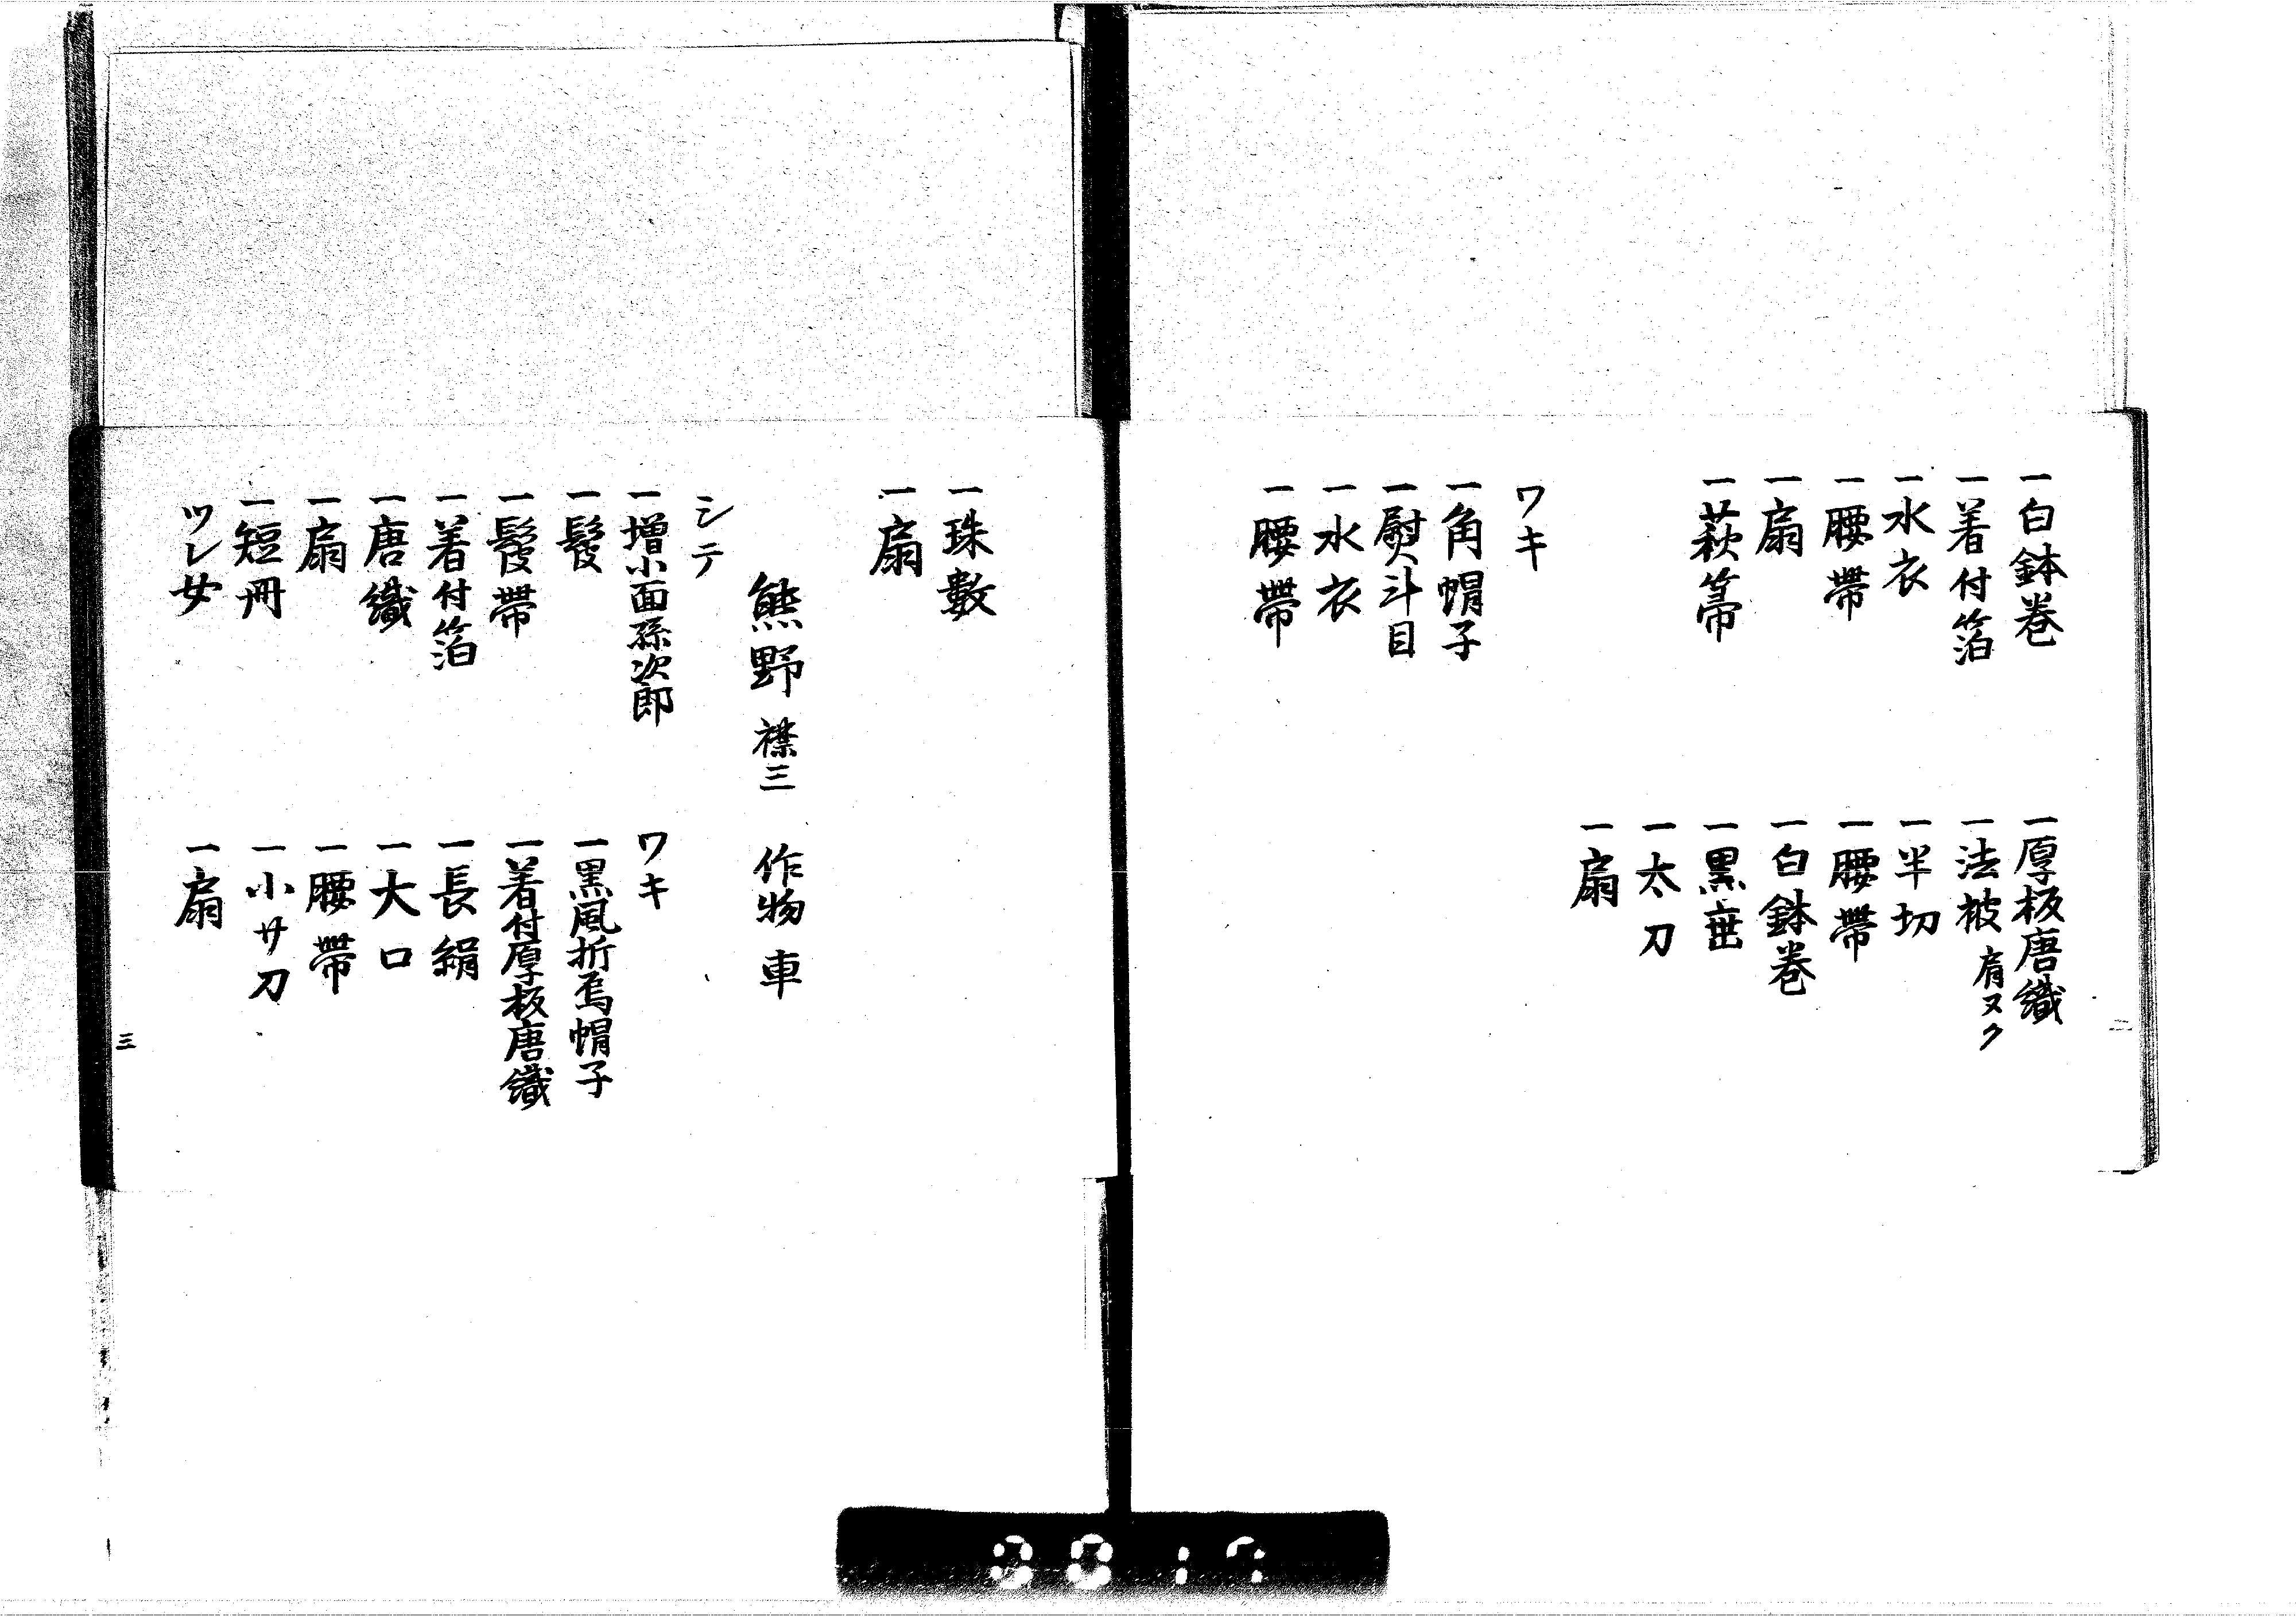 一白鉢巻
一着付箔
一水衣
一腰帶
一扇
一萩箒
一厚板唐織
一法被 肩ヌク
一半切
一腰帶
一白鉢巻
一黒垂
一太刀
一扇
ワキ
一角帽子
一熨斗目
一水衣
一腰帶
二
一珠數
一扇
熊野 襟三 作物 車
シテ
一増小面孫次郎
一鬘
一鬘帶
一着付箔
一唐織
一扇
一短冊
ツレ女
ワキ
一黒風折烏帽子
一着付厚板唐織
一長絹
一大口
一腰帶
一小サ刀
一扇
三